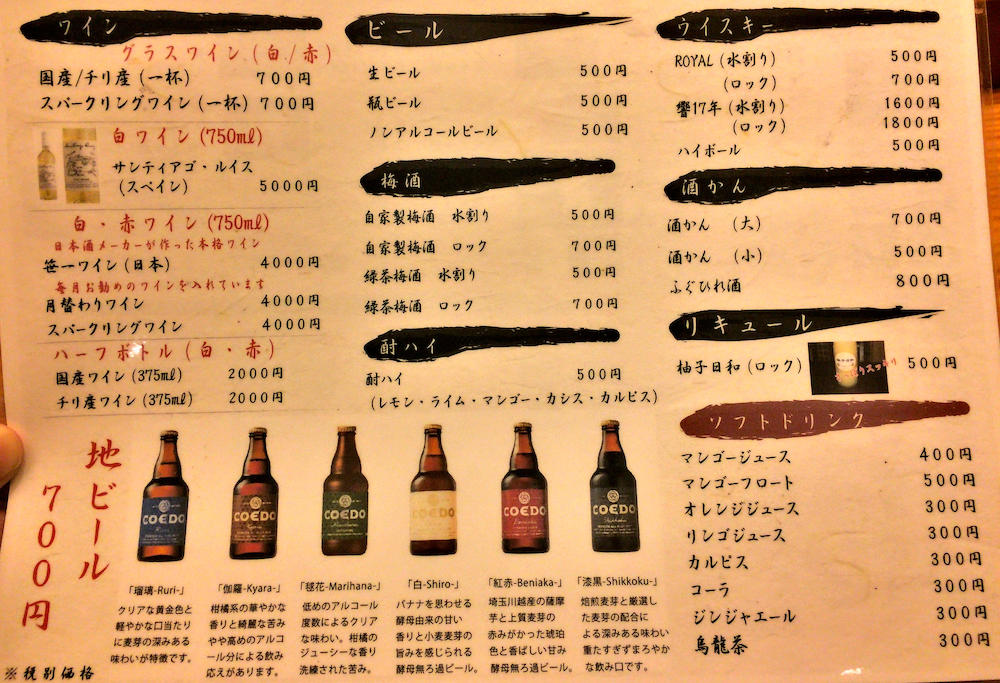 ワイン
グラスワイン(白/赤)
国産/チリ産(一杯) 700円
スパークリングワイン(一杯) 700円
白ワイン(750ml)
サンティアゴ・ルイス
(スペイン) 5000円
白・赤ワイン(750ml)
日本酒メーカーが作った本格ワイン
笹一ワイン(日本) 4000円
毎月お勧めのワインを入れています
月替わりワイン 4000円
スパークリングワイン 4000円
ハーフボトル(白・赤)
国産ワイン(375ml) 2000円
チリ産ワイン(375ml) 2000円
ビール
生ビール 500円
瓶ビール 500円
ノンアルコールビール 500円
梅酒
自家製梅酒 水割り 500円
自家製梅酒 ロック 700円
緑茶梅酒 水割り 500円
緑茶梅酒 ロック 700円
酎ハイ
酎ハイ 500円
(レモン・ライム・マンゴー・カシス・カルピス)
ウイスキー
ROYAL(水割り) 500円
(ロック) 700円
響17年(水割り) 1600円
(ロック) 1800円
ハイボール 500円
酒かん
酒かん (大) 700円
酒かん (小) 500円
ふぐひれ酒 800円
リキュール
柚子日和(ロック) 500円
ソフトドリンク
マンゴージュース 400円
マンゴーフロート 500円
オレンジジュース 300円
リンゴジュース 300円
カルピス 300円
コーラ 300円
ジンジャエール 300円
烏龍茶 300円
地ビール
700円
COEDO
COEDO
COEDO
COEDO
COEDO
COEDO
「瑠璃-Ruri-」
クリアな黄金色と
軽やかな口当たり
に麦芽の深みある
味わいが特徴です。
「伽羅-Kyara-」
柑橘系の華やかな
香りと綺麗な苦み
やや高めのアルコ
ール分による飲み
応えがあります。
「毬花-Marihana-」
低めのアルコール
度数によるクリア
な味わい。柑橘の
ジューシーな香り
洗練された苦み。
「白-Shiro-」
バナナを思わせる
酵母由来の甘い
香りと小麦麦芽の
旨みを感じられる
酵母無ろ過ビール。
「紅赤-Beniaka-」
埼玉川越産の薩摩
芋と上質麦芽の
赤みがかった琥珀
色と香ばしい甘み
酵母無ろ過ビール。
「漆黒-Shikkoku-」
焙煎麦芽と厳選し
た麦芽の配合に
よる深みある味わい
重たすぎずまろやか
な飲み口です。
※税別価格